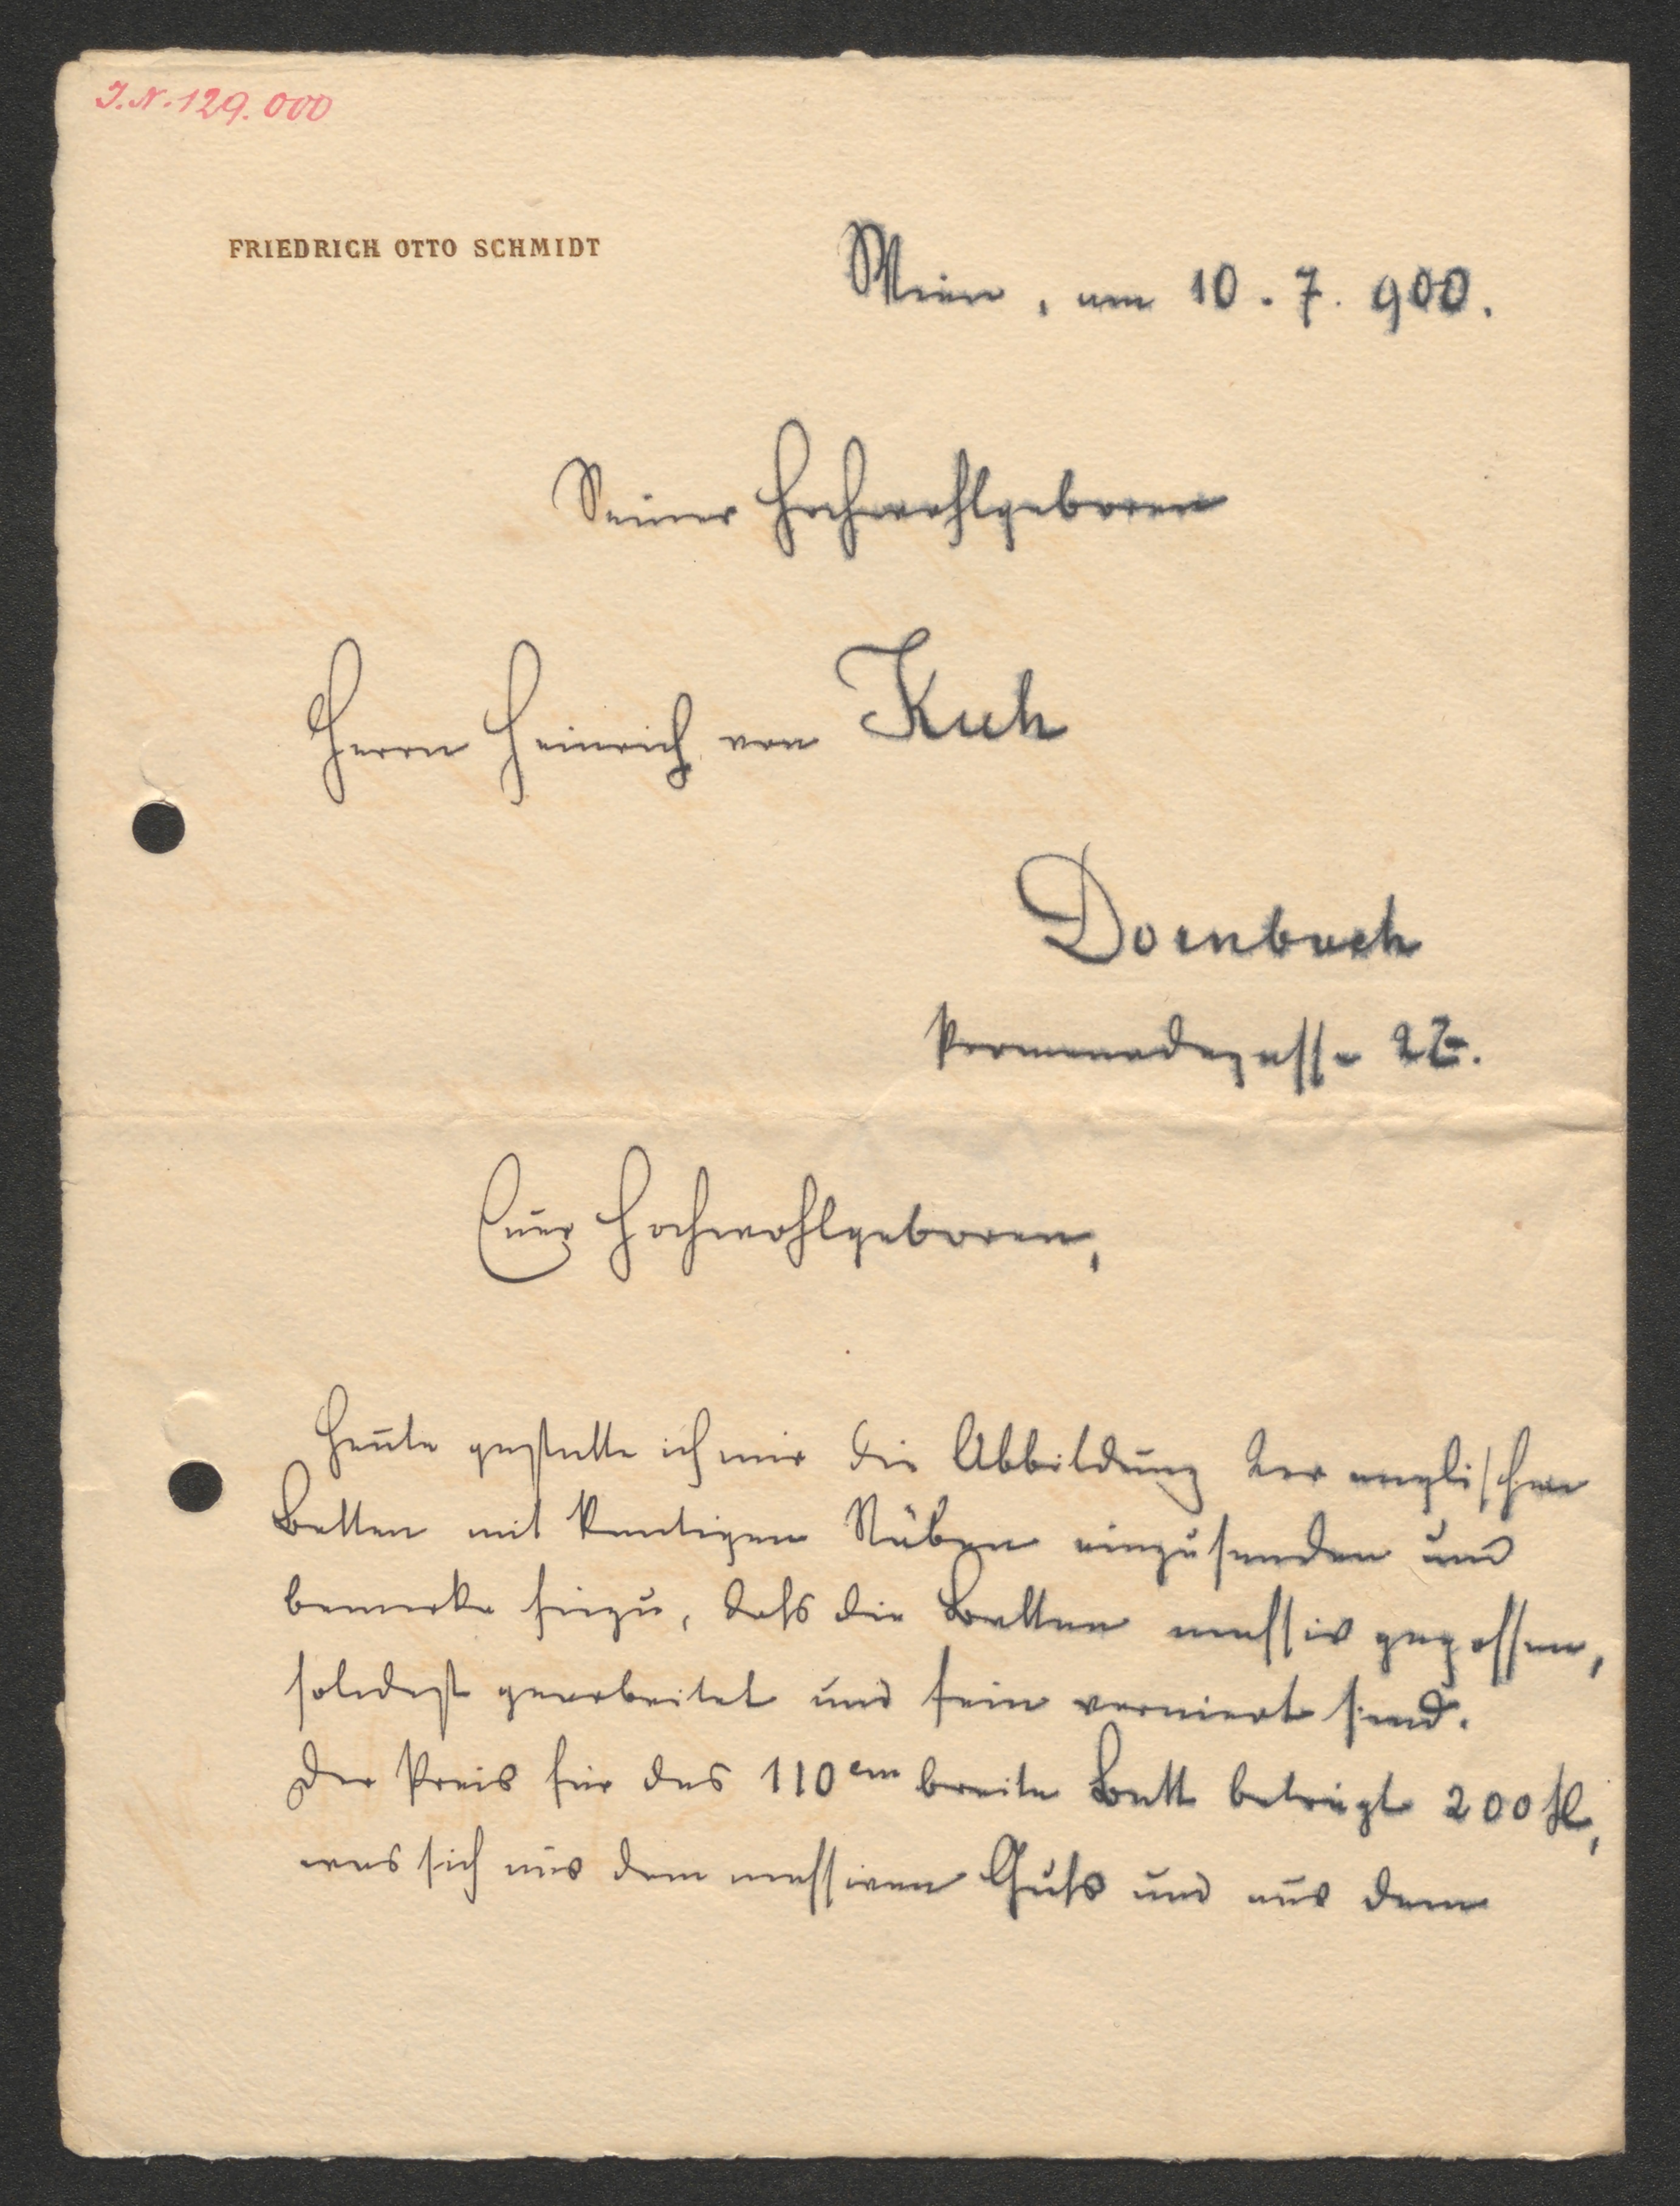 I.N. 129.000
FRIEDRICH OTTO SCHMIDT
Wien, am 10. 7. 900.
Seiner Hochwohlgeboren
Herrn Heinrich von Kuh
Dornbach
Promenadegasse
Euer Hochwohlgeboren,
Heute gestatte ich mir die Abbildung der englischen
Betten mit kantigen Stäben einzusenden und
bemerke hiezu, dass die Betten massiv gegossen,
solidest gearbeitet und fein verniert sind.
Der Preis für das 110 cm breite Bett beträgt 200 fl,
was sich aus dem massiven Guss und aus dem